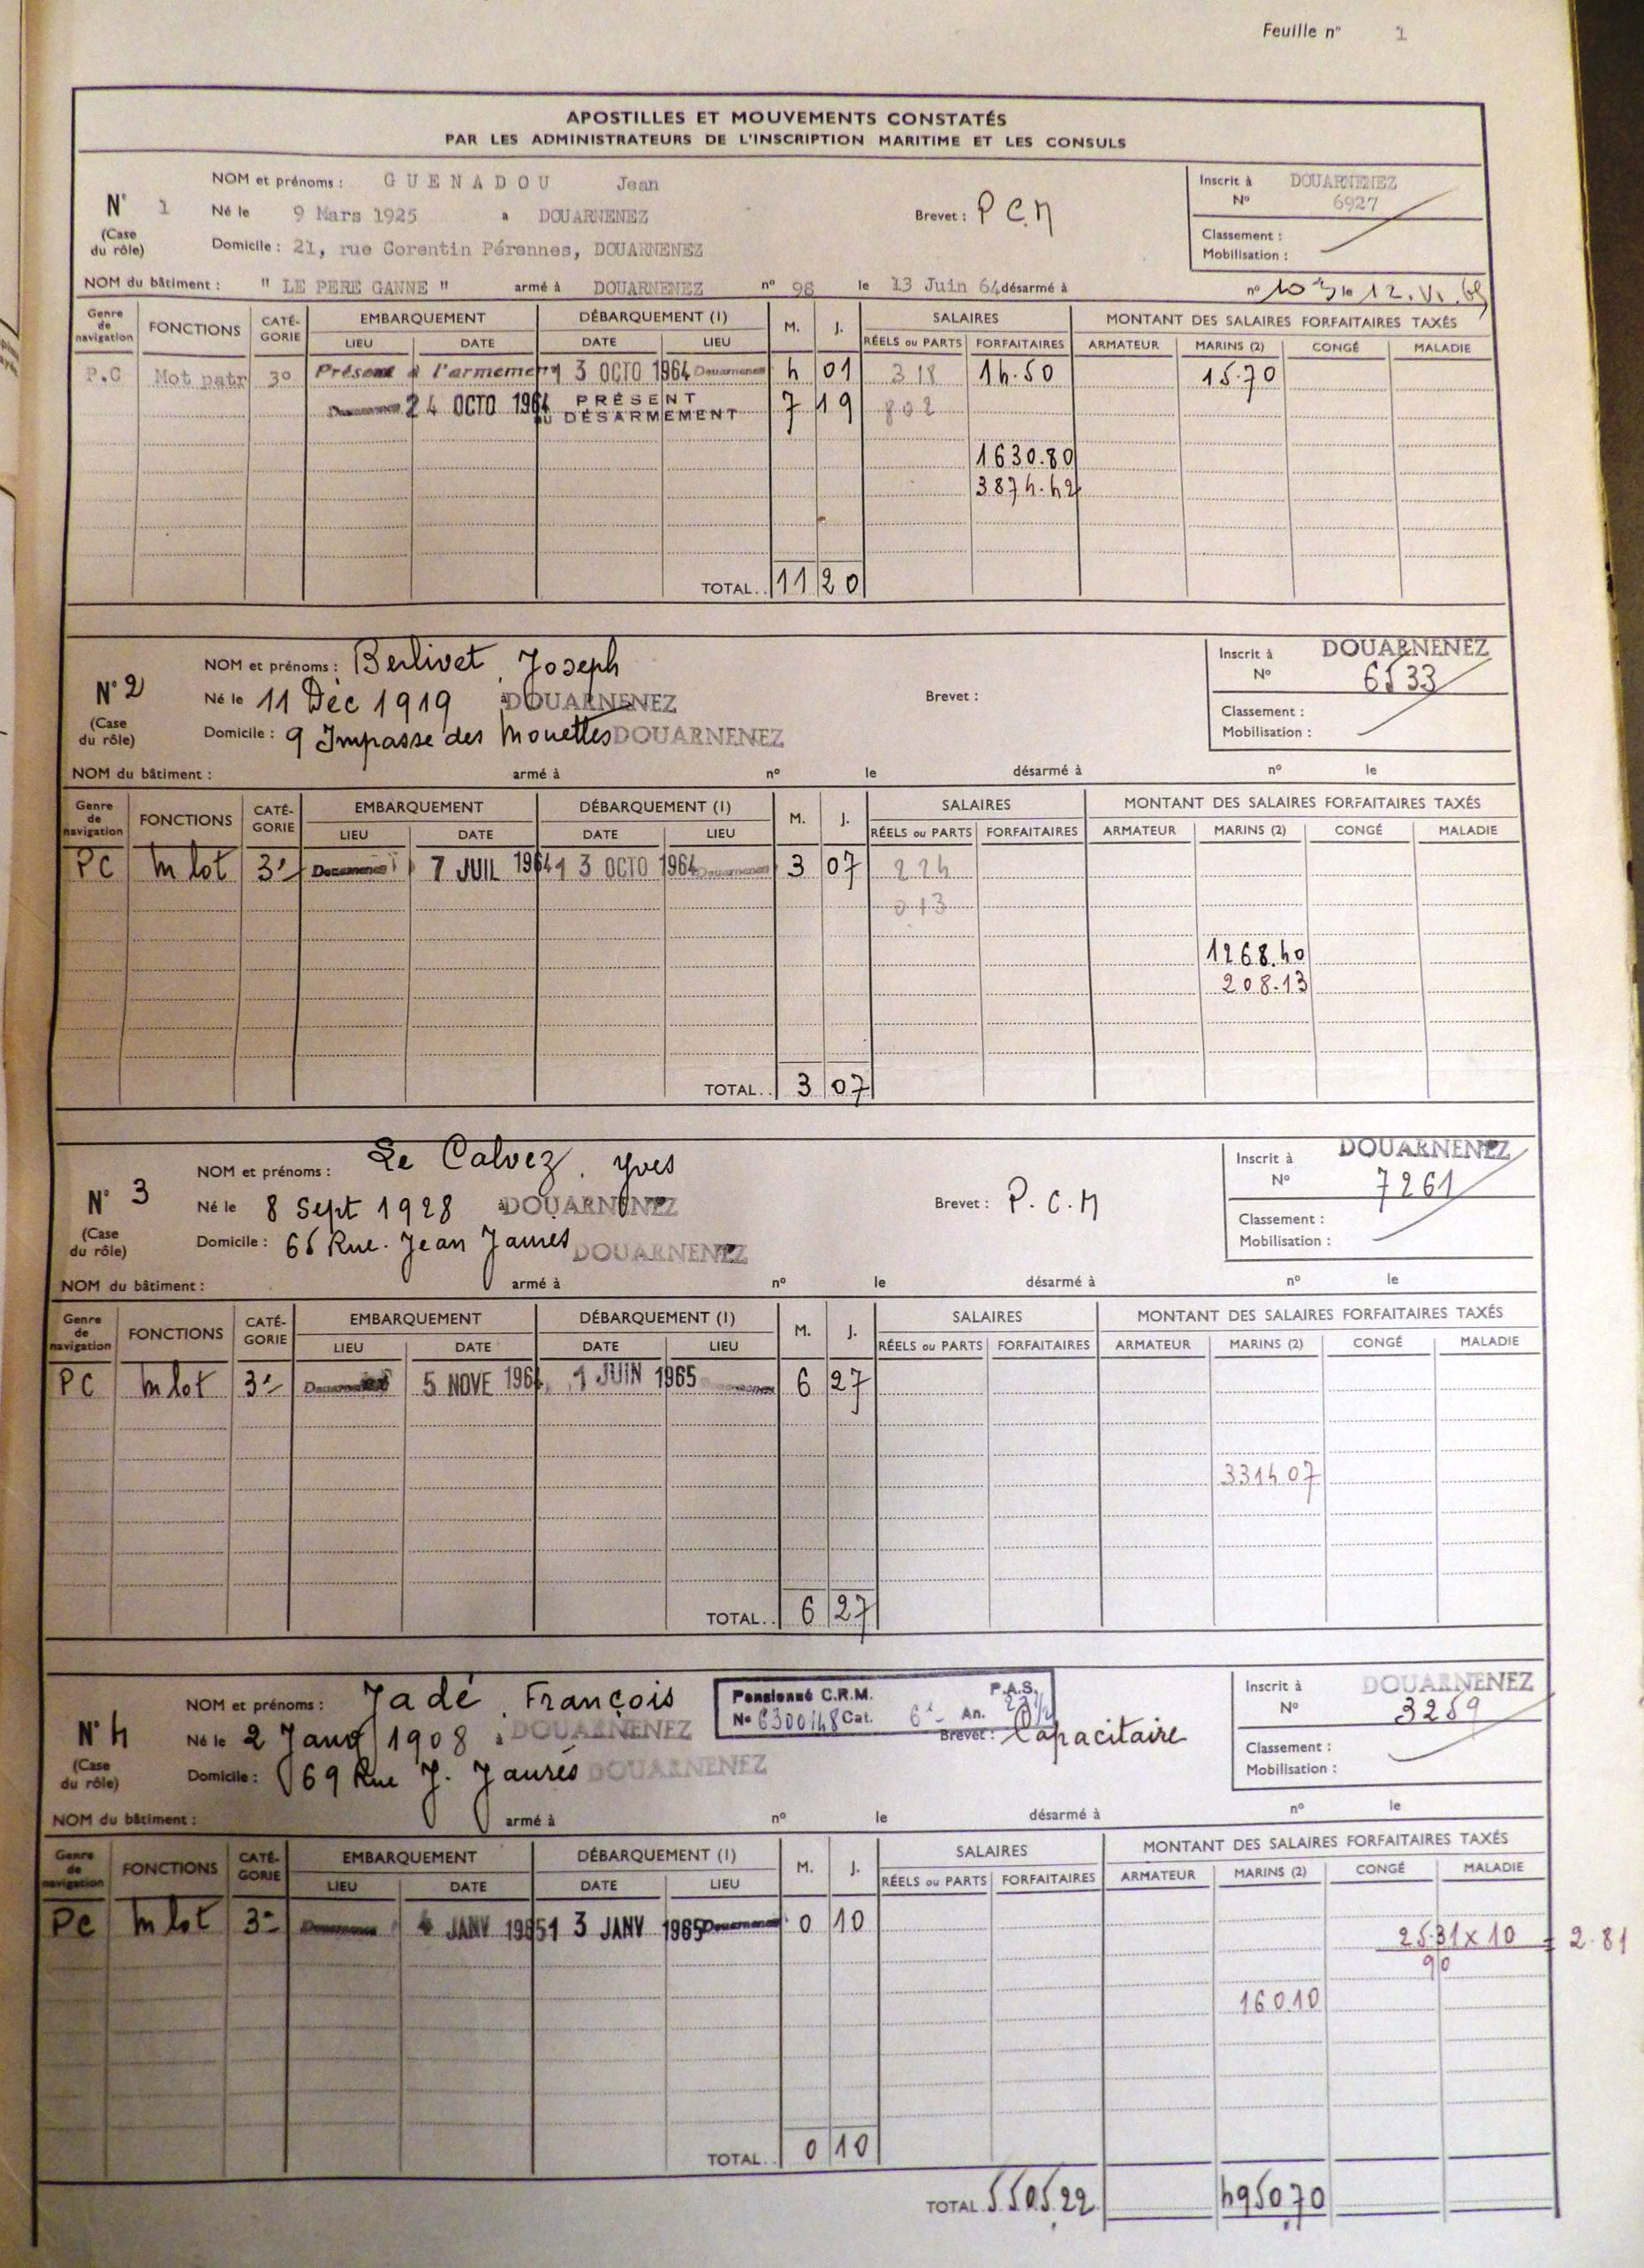 Feuille n° 1
APOSTILLES ET MOUVEMENTS CONSTATÉS
PAR LES ADMINISTRATEURS DE L'INSCRIPTION MARITIME ET LES CONSULS
N° 1
(Case du rôle)
NOM et prénoms : GUENADOU Jean
Né le 9 Mars 1925 à DOUARNENEZ
Domicile : 21, rue Corentin Pérennes, DOUARNENEZ
Brevet : P C M
Inscrit à DOUARNENEZ
N° 6927
Classement :
Mobilisation :
NOM du bâtiment : " LE PERE GANNE " armé à DOUARNENEZ n° 98 le 13 Juin 64 désarmé à n° 103 le 12.VI.65
Genre de navigation FONCTIONS CATÉ-GORIE EMBARQUEMENT DÉBARQUEMENT (1) M. J. SALAIRES MONTANT DES SALAIRES FORFAITAIRES TAXÉS
LIEU DATE DATE LIEU RÉELS ou PARTS FORFAITAIRES ARMATEUR MARINS (2) CONGÉ MALADIE
P.C Mot patr 3° Présent à l'armement 13 OCTO 1964 Douarnenez 4 01 318 14.50 15.70
Douarnenez 24 OCTO 1964 PRÉSENT AU DÉSARMEMENT 7 19 802
1630.80
3874.42
TOTAL.. 11 20
N° 2
(Case du rôle)
NOM et prénoms : Berlivet Joseph
Né le 11 Déc 1919 à DOUARNENEZ
Domicile : 9 Impasse des Mouettes DOUARNENEZ
Brevet :
Inscrit à DOUARNENEZ
N° 6533
Classement :
Mobilisation :
NOM du bâtiment : armé à n° le désarmé à n° le
Genre de navigation FONCTIONS CATÉ-GORIE EMBARQUEMENT DÉBARQUEMENT (1) M. J. SALAIRES MONTANT DES SALAIRES FORFAITAIRES TAXÉS
LIEU DATE DATE LIEU RÉELS ou PARTS FORFAITAIRES ARMATEUR MARINS (2) CONGÉ MALADIE
PC Mlot 3e Douarnenez 7 JUIL 1964 13 OCTO 1964 Douarnenez 3 07 224
013
1268.40
208.13
TOTAL.. 3 07
N° 3
(Case du rôle)
NOM et prénoms : Le Calvez Yves
Né le 8 Sept 1928 à DOUARNENEZ
Domicile : 65 Rue Jean Jaurès DOUARNENEZ
Brevet : P.C.M
Inscrit à DOUARNENEZ
N° 7261
Classement :
Mobilisation :
NOM du bâtiment : armé à n° le désarmé à n° le
Genre de navigation FONCTIONS CATÉ-GORIE EMBARQUEMENT DÉBARQUEMENT (1) M. J. SALAIRES MONTANT DES SALAIRES FORFAITAIRES TAXÉS
LIEU DATE DATE LIEU RÉELS ou PARTS FORFAITAIRES ARMATEUR MARINS (2) CONGÉ MALADIE
PC Mlot 3e Douarnenez 5 NOVE 1964 1 JUIN 1965 6 27
3314 07
TOTAL.. 6 27
N° 4
(Case du rôle)
NOM et prénoms : Jadé François
Né le 2 Janv 1908 à DOUARNENEZ
Domicile : 69 Rue J. Jaurès DOUARNENEZ
Pensionné C.R.M. P.A.S.
N° 6300148 Cat. 6e An.
Brevet : Capacitaire
Inscrit à DOUARNENEZ
N° 3259
Classement :
Mobilisation :
NOM du bâtiment : armé à n° le désarmé à n° le
Genre de navigation FONCTIONS CATÉ-GORIE EMBARQUEMENT DÉBARQUEMENT (1) M. J. SALAIRES MONTANT DES SALAIRES FORFAITAIRES TAXÉS
LIEU DATE DATE LIEU RÉELS ou PARTS FORFAITAIRES ARMATEUR MARINS (2) CONGÉ MALADIE
PC Mlot 3e 4 JANV 1965 13 JANV 1965 Douarnenez 0 10
25.31 x 10 = 2.81
90
160.10
TOTAL.. 0 10
TOTAL 5505.22 4950.70